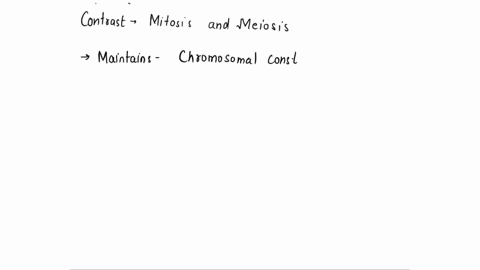 Contrast → Mitosis and Meiosis
→ Maintains - Chromosomal const